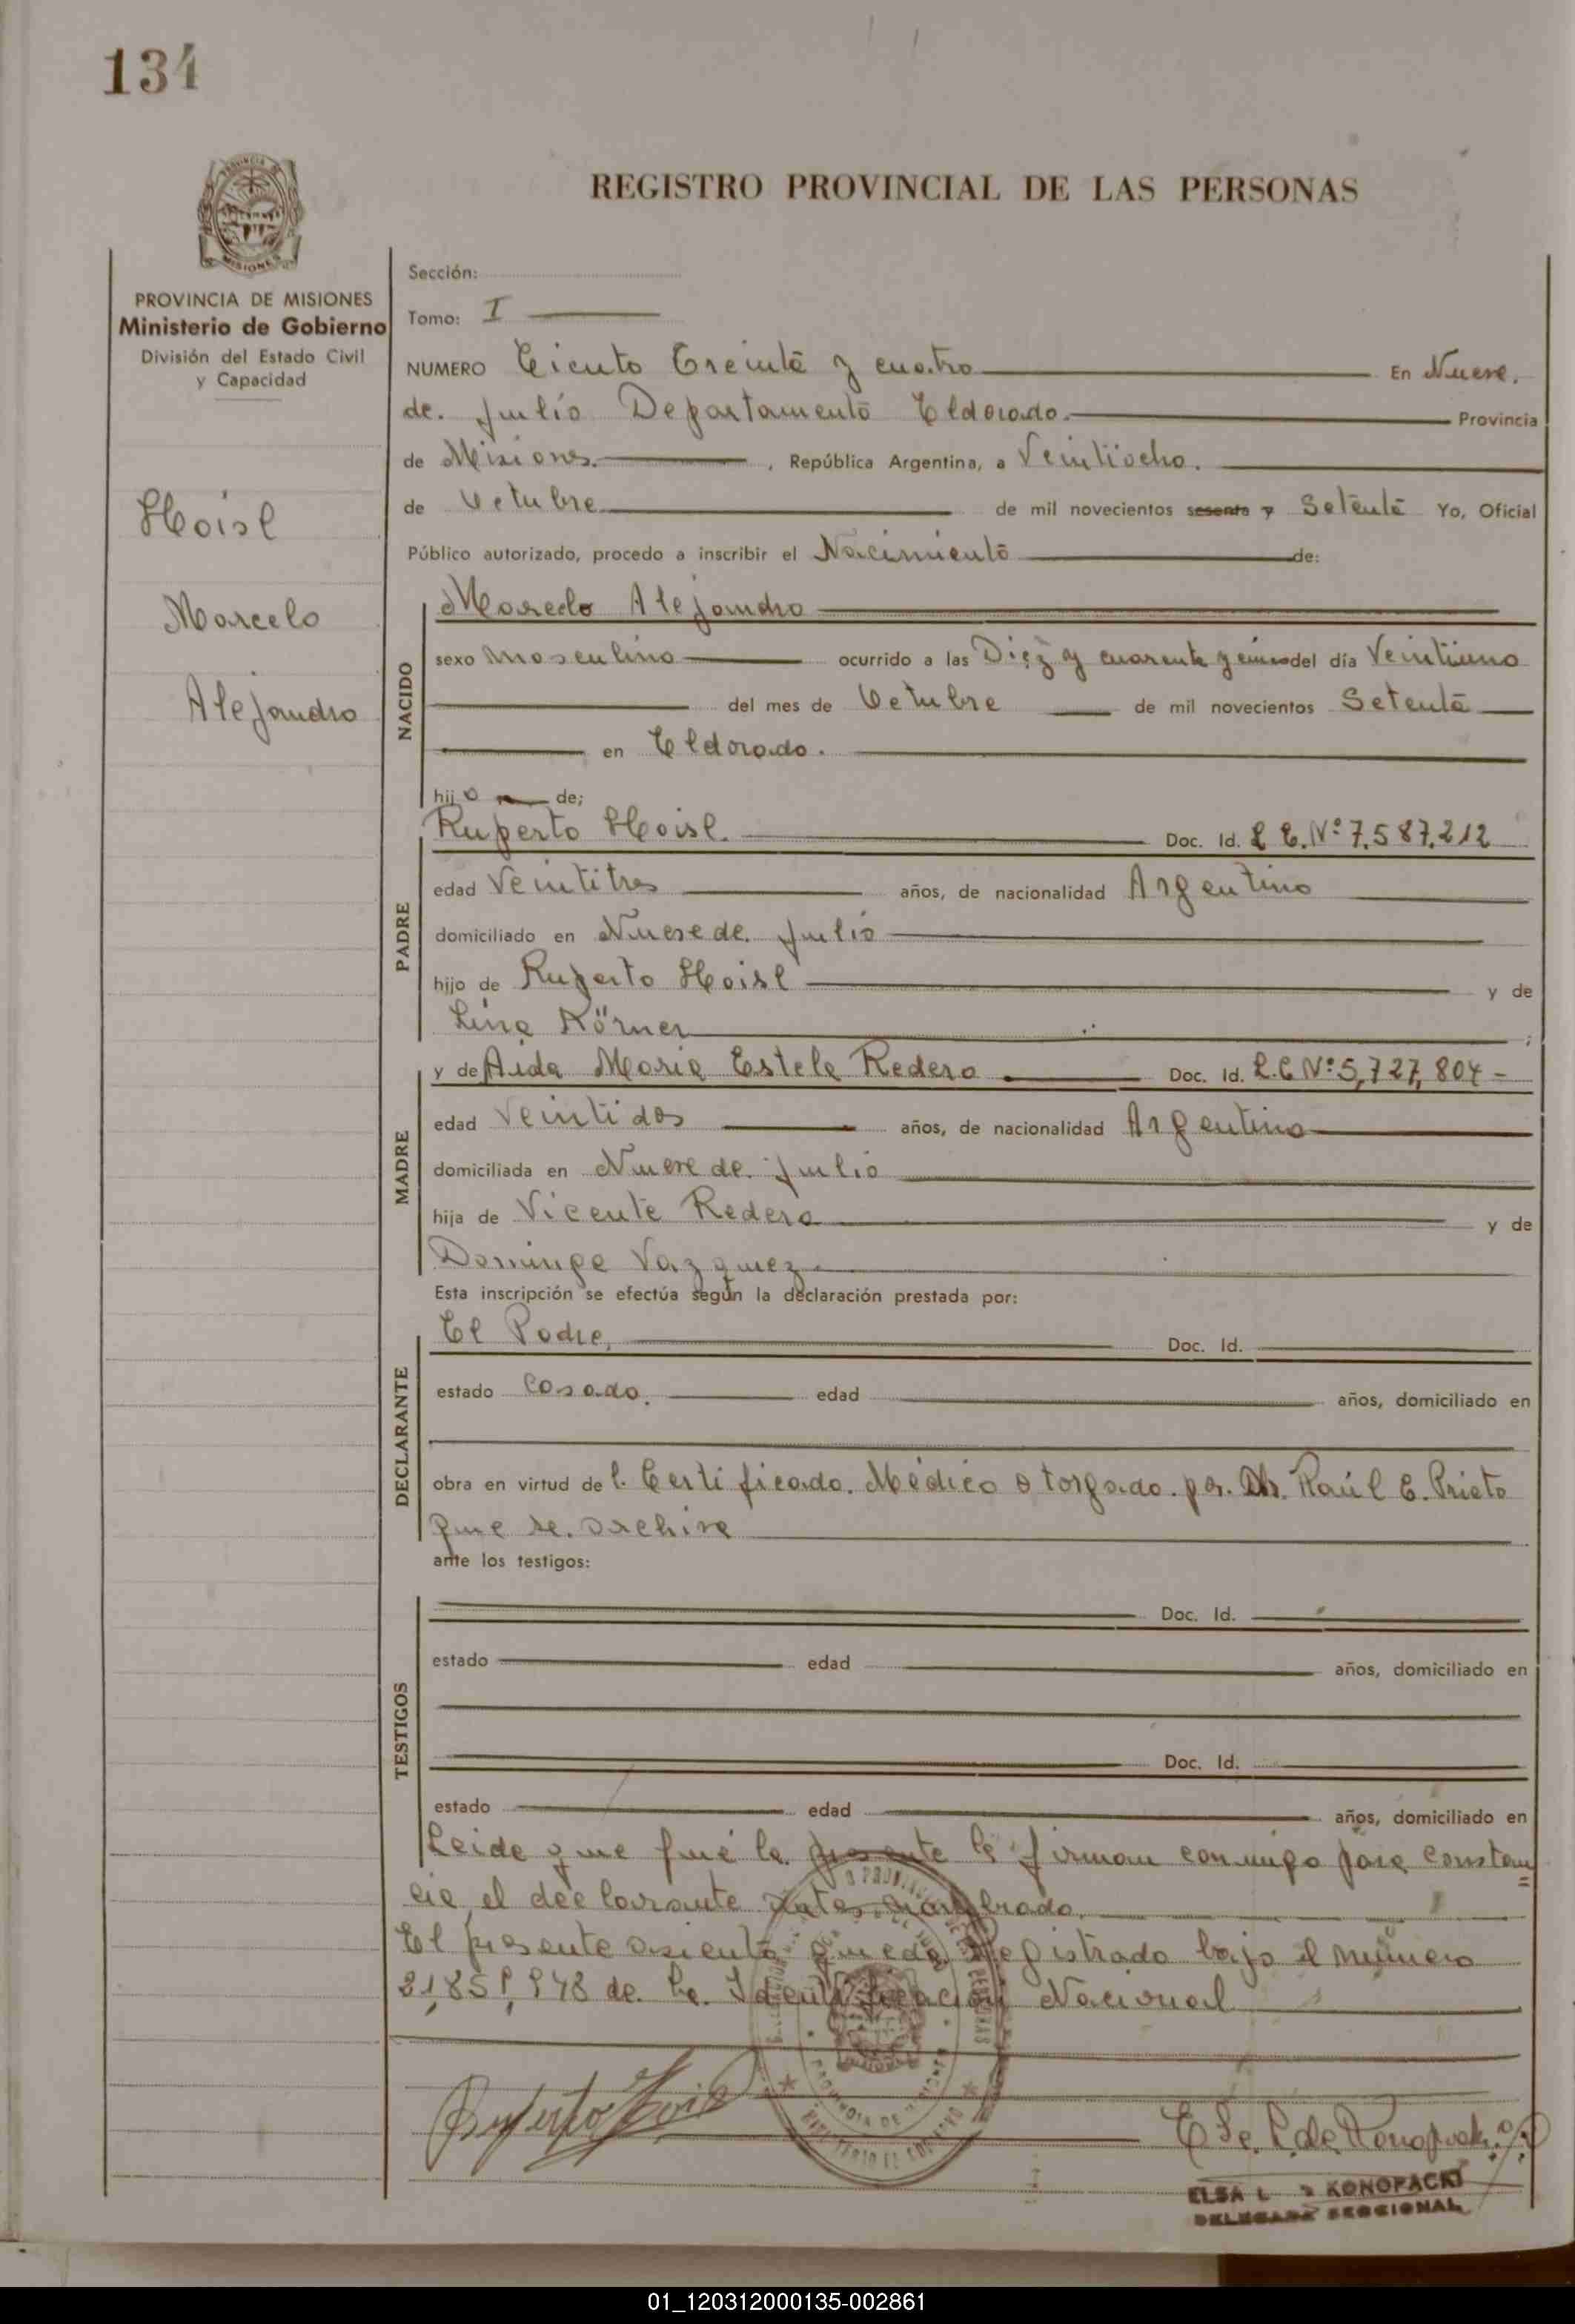 134
REGISTRO PROVINCIAL DE LAS PERSONAS
PROVINCIA DE MISIONES
Ministerio de Gobierno
División del Estado Civil
y Capacidad
Hoisl
Marcelo
Alejandro
Sección:
Tomo: I
NUMERO Ciento Treinta y cuatro En Nueve
de Julio Departamento Eldorado. Provincia
de Misiones. , República Argentina, a Veintiocho.
de Octubre de mil novecientos sesenta y Setenta Yo, Oficial
Público autorizado, procedo a inscribir el Nacimiento de:
NACIDO
Marcelo Alejandro
sexo masculino ocurrido a las Diez y cuarenta y cinco del día Veintiuno
del mes de Octubre de mil novecientos Setenta
en Eldorado.
hijo de;
PADRE
Ruperto Hoisl. Doc. Id. L E. Nº 7.587.212
edad Veintitres años, de nacionalidad Argentino
domiciliado en Nueve de Julio
hijo de Ruperto Hoisl y de
Lina Körner ;
MADRE
y de Aida Maria Estela Redero Doc. Id. L.C Nº 5,727,804-
edad Veintidos años, de nacionalidad Argentina
domiciliada en Nueve de Julio
hija de Vicente Redero y de
Dominga Vazquez.
Esta inscripción se efectúa según la declaración prestada por:
DECLARANTE
El Padre, Doc. Id.
estado Casado. edad años, domiciliado en
obra en virtud de l. Certificado. Médico otorgado. por. Dr. Raúl E. Prieto
que se. archiva
ante los testigos:
TESTIGOS
Doc. Id.
estado edad años, domiciliado en
Doc. Id.
estado edad años, domiciliado en
Leida que fué la presente la firman conmigo para constan
cia el declarante antes nombrado.
El presente asiento queda Registrado bajo el número
de. la. Identificación Nacional
Ruperto Hoisl
PROVINCIA DE MISIONES
MINISTERIO DE GOBIERNO
ELSA L KONOPACKI
DELEGADA SECCIONAL
01_120312000135-002861